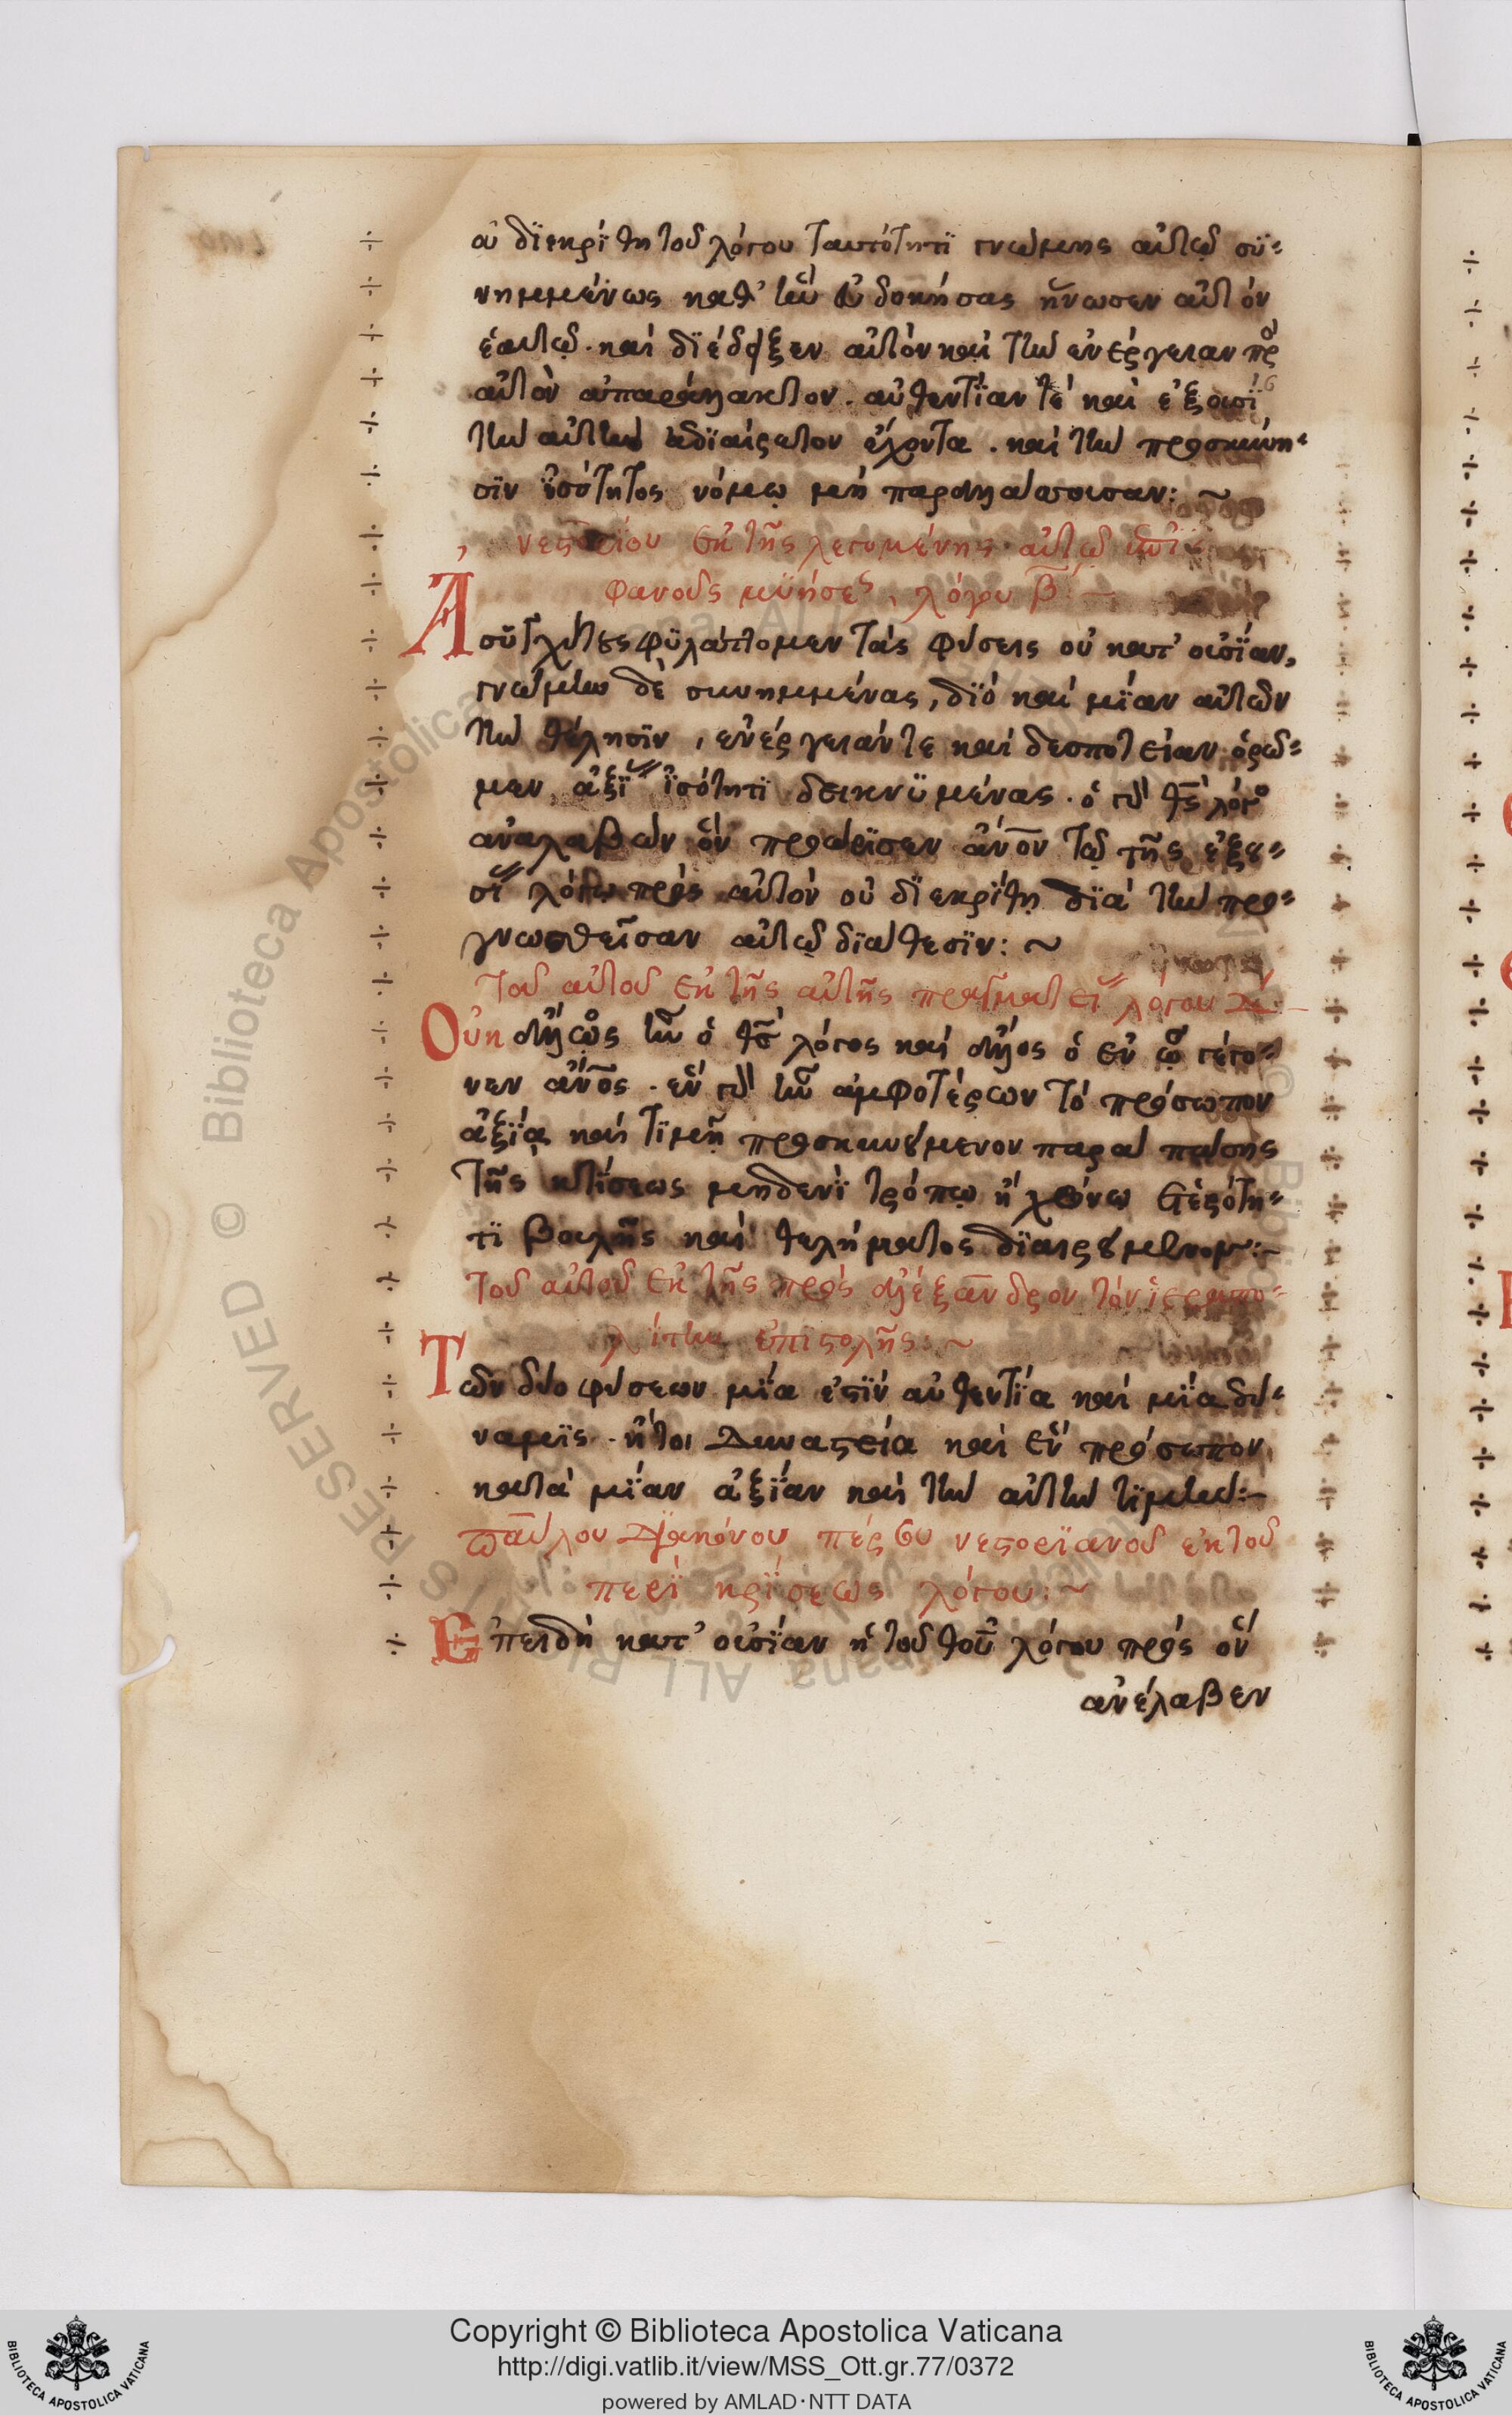 οὐ διεκρίθη τοῦ λόγου ταυτότητι γνώμης αὐτῷ συ-
νημμένως καθ' ἣν εὐδοκήσας ἥνωσεν αὐτὸν
ἑαυτῷ. καὶ διέδειξεν αὐτὸν καὶ τὴν ἐνέργειαν πρὸς
αὐτὸν ἀπαράλλακτον. αὐθεντίαν τὲ καὶ ἐξουσί
τὴν αὐτὴν ἀδιαίρετον ἔχοντα. καὶ τὴν προσκύνη-
σιν ἰσότητος νόμῳ μὴ παραλλάττουσαν: ~
νεστορίου ἐκ τῆς λεγομένης αὐτῷ ἐπι
φανοῦς μυήσε, λόγου β:
Ἀσυγχύτους φυλάττομεν τὰς φύσεις οὐ κατ' οὐσίαν,
γνώμῃ δὲ συνημμένας, διὸ καὶ μίαν αὐτῶν
τὴν θέλησιν, ἐνέργειάν τε καὶ δεσποτείαν ὁρῶ-
μεν, ἀξί ἰσότητι δεικνυμένας. ὁ γὰρ θς λόγο
ἀναλαβὼν ὃν προώρισεν ἄνον τῷ τῆς ἐξου-
σί λόγῳ πρὸς αὐτὸν οὐ διεκρίθη διὰ τὴν προ-
γνωσθεῖσαν αὐτῷ διάθεσιν: ~
Τοῦ αὐτοῦ ἐκ τῆς αὐτῆς πραγματεί λόγου δ:
Οὐκ ἄλλως ἦν ὁ θς λόγος καὶ ἄλλος ὁ ἐν ᾧ γέγο-
νεν ἄνος. ἓν γὰρ ἦν ἀμφοτέρων τὸ πρόσωπον
ἀξίᾳ καὶ τιμῇ προσκυνούμενον παρὰ πάσης
τῆς κτίσεως μηδενὶ τρόπῳ ἢ χρόνῳ ἑτερότη-
τι βουλῆς καὶ θελήματος διαιρούμενον: ~
Τοῦ αὐτοῦ ἐκ τῆς πρὸς ἀλέξανδρον τὸν ἱεραπο-
λίτην ἐπιστολῆς: ~
Τῶν δύο φύσεων μία ἐστὶν αὐθεντία καὶ μία δύ-
ναμις. ἤτοι δυναστεία καὶ ἓν πρόσωπον
κατὰ μίαν ἀξίαν καὶ τὴν αὐτὴν τιμὴν: ~
παύλου διακόνου πέρσου νεστοριανοῦ ἐκ τοῦ
περὶ κρίσεως λόγου: ~
Ἐπειδὴ κατ' οὐσίαν ἡ τοῦ θοῦ λόγου πρὸς ὃν
ἀνέλαβεν
Copyright © Biblioteca Apostolica Vaticana
http://digi.vatlib.it/view/MSS_Ott.gr.77/0372
powered by AMLAD·NTT DATA